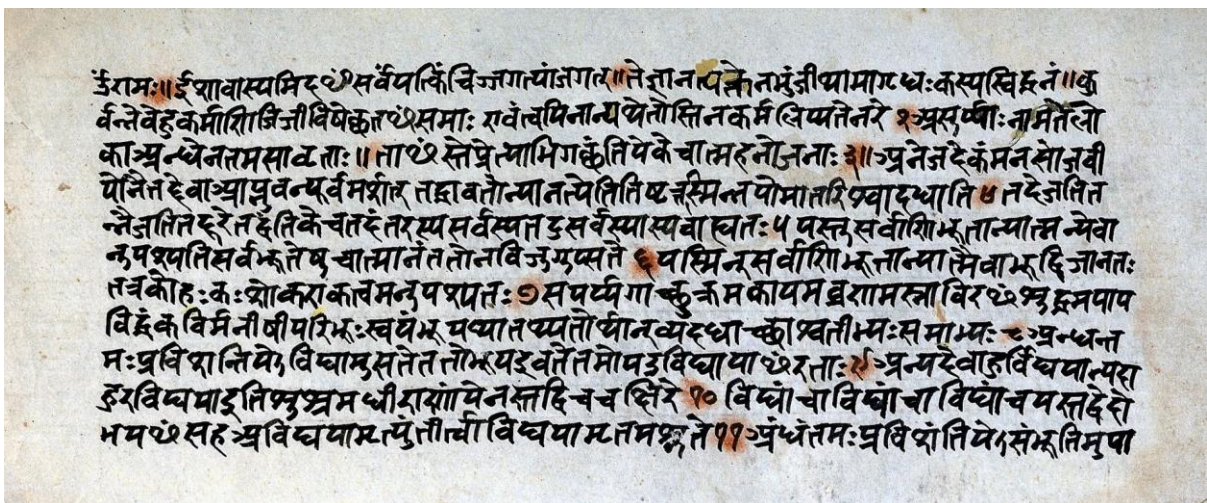 ॐरामः॥ईशावास्यमिदꣳसर्वंयत्किंचिज्जगत्यांजगत्॥तेज्ञानत्यक्तेनभुंजीथामागृधःकस्यस्विद्धनं॥कु
र्वन्नेवेहकर्माणिजिजीविषेछतꣳसमाः एवंत्वयिनान्यथेतोस्तिनकर्मलिप्यतेनरे २असुर्य्याःनामतेलो
काअन्धेनतमसावृताः॥ताꣳस्तेप्रेत्याभिगछंतियेकेचात्महनोजनाः३॥अनेजदेकंमनसोजवी
योनैनद्देवाआप्नुवन्पूर्वमर्शात् तद्धावतोन्यानत्येतितिष्टत्तस्मिन्नपोमातरिश्वादधाति ४ तदेजतित
न्नैजतितद्दूरेतद्वंतिकेचतदंतरस्यसर्वस्यतदुसर्वस्यास्यबास्यतः५ यस्तुसर्वाणिभूतान्यात्मन्येवा
नुपश्यतिसर्वभूतेषुचात्मानंततोनविजुगुप्सते ६यस्मिन्सर्वाणिभूतान्यात्मैवाभूद्विजानतः
तत्रकोहःकःशोकएकत्वमनुपश्यतः७सपर्य्यगाच्छुक्रमकायमव्रणमस्नाविरꣳशुद्धमपाप
विद्धंकविर्मनीषीपरिभूःस्वयंभूयथातथ्यतोर्थान्व्यदधाच्छाश्वतीभ्यःसमाभ्यः८अन्धन्त
मःप्रविशन्तियेऽविद्यामुसतेततोभूयइवतेतमोयउविद्यायाꣳरताः९अन्यदेवाहुर्विद्ययान्यदा
हुरविद्ययाइतिशुश्रुमधीराणांयेनस्तद्विचचक्षिरे १० विद्यांचाविद्यांचाविद्यांचयस्तद्वेदो
भयꣳसहअविद्ययामृत्युंतीर्त्वाविद्ययामृतमश्नुते११अंधंतमःप्रविशंतियेऽसंभूतिमुपा